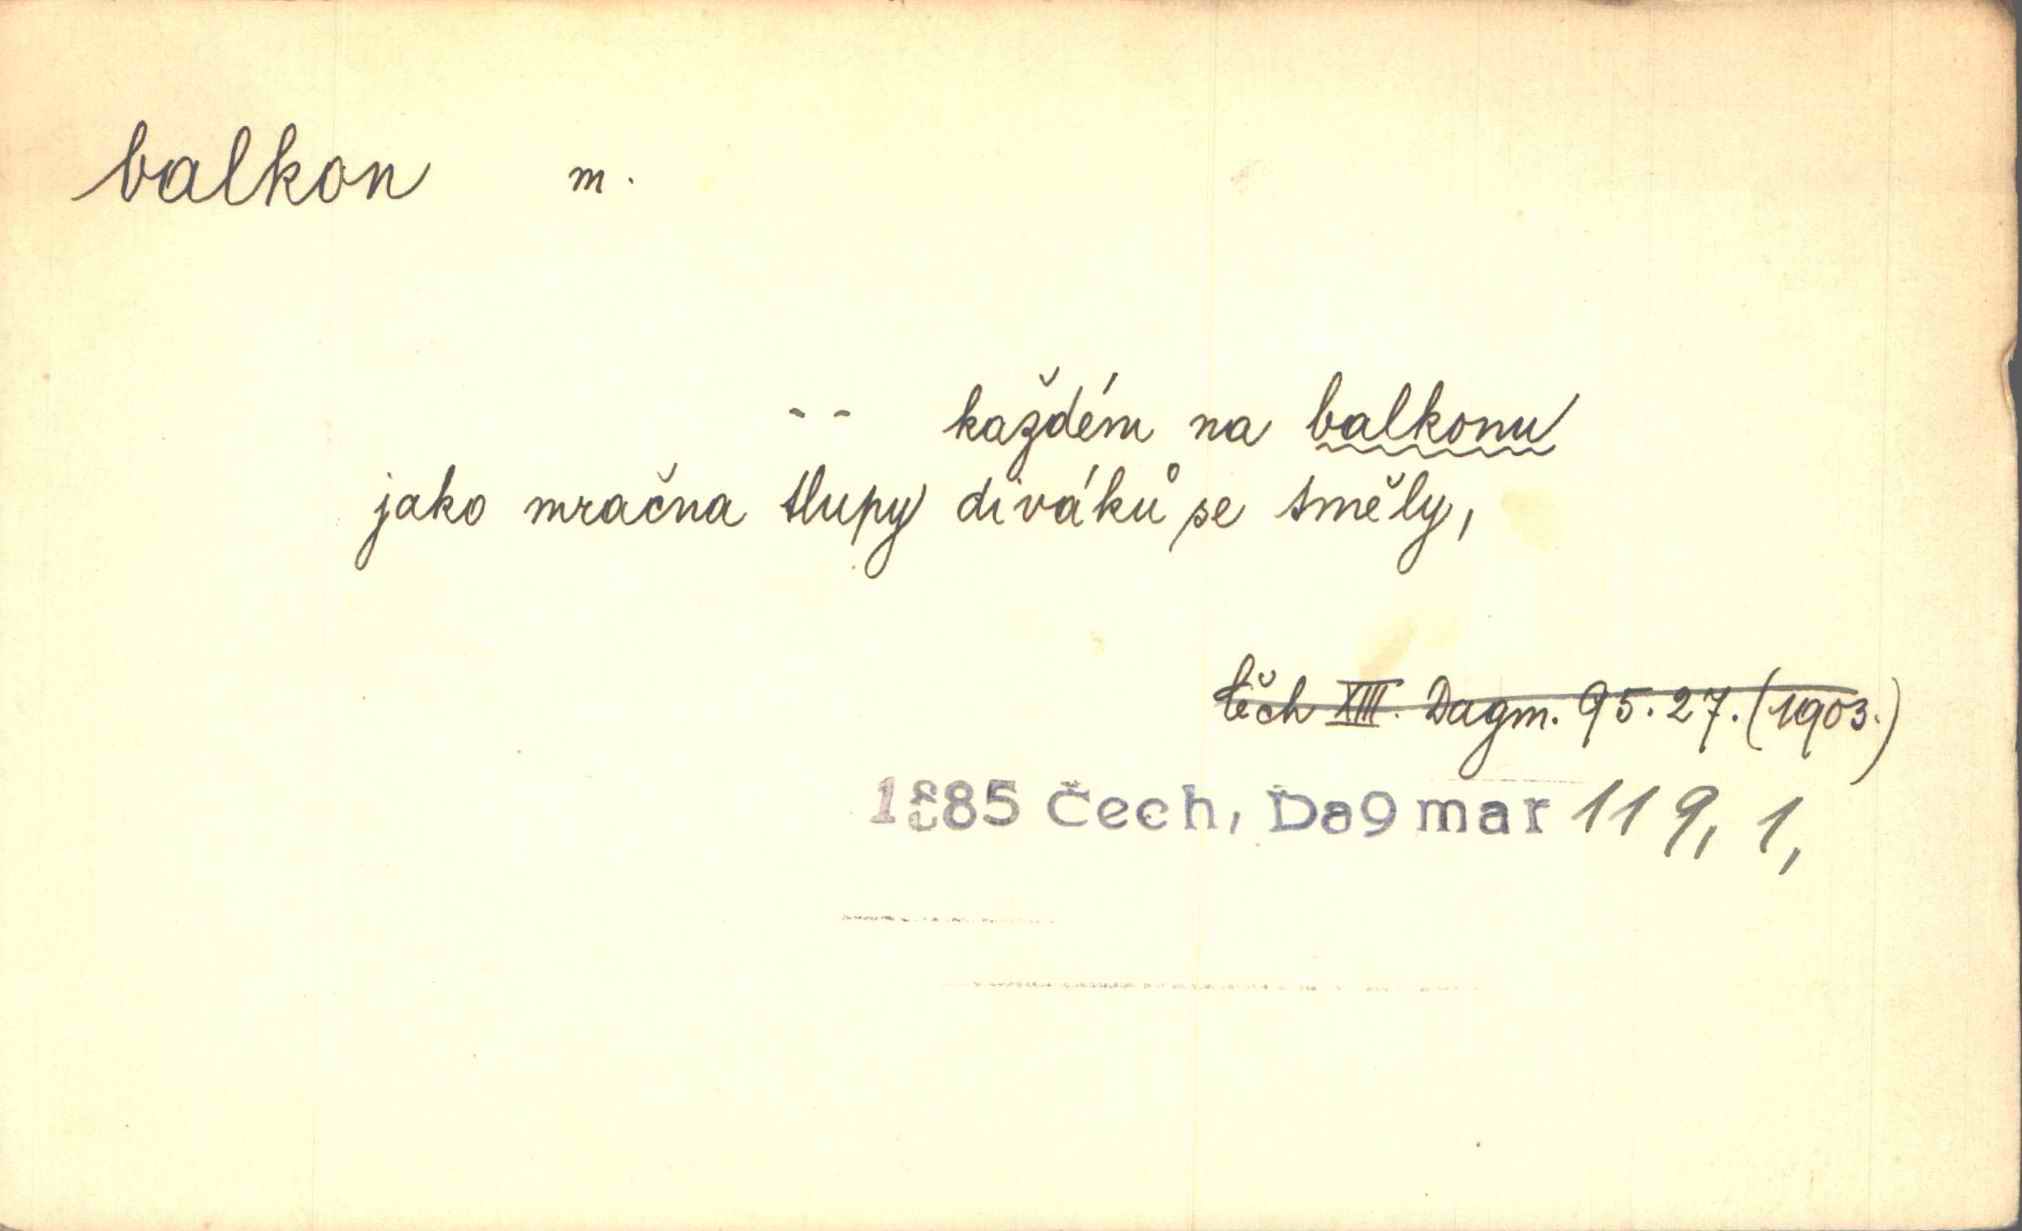 balkon m.
-- každém na balkonu
jako mračna tlupy diváků se tměly,
Čech XIII. Dagm. 95. 27. (1903.)
1885 Čech, Dagmar 119, 1,